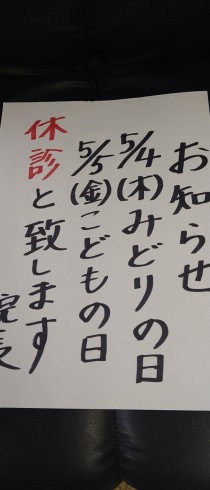 お知らせ
5/4(木)みどりの日
5/5(金)こどもの日
休診と致します
院長